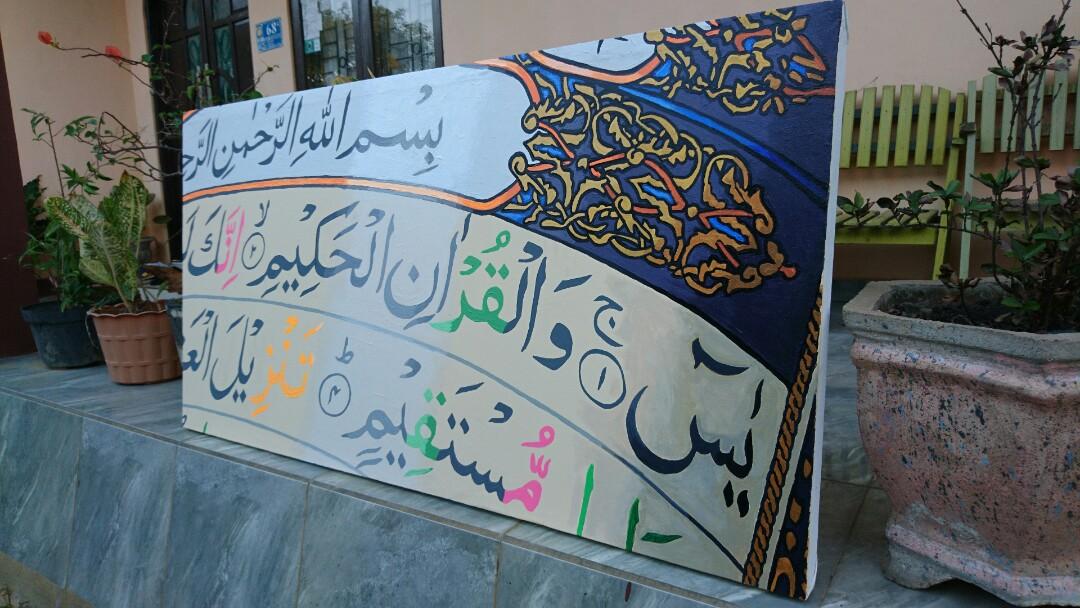 68
بِسْمِ اللّٰهِ الرَّحْمٰنِ الرَّح
يٰسۤ ۚ ١ وَالْقُرْاٰنِ الْحَكِيْمِ ۙ ٢ اِنَّكَ لَ
مُّسْتَقِيْمٍ ؕ ۴ تَنْزِيْلَ الْعَ